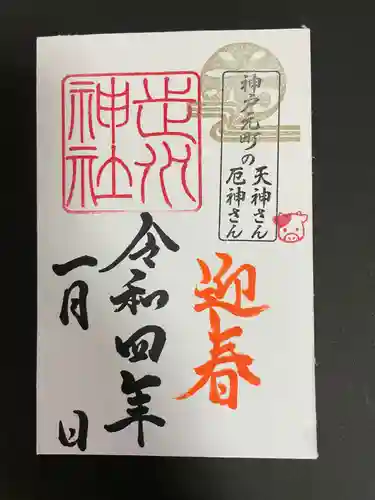 神戸元町の
天神さん
厄神さん
走水
神社
迎春
令和四年
一月 日